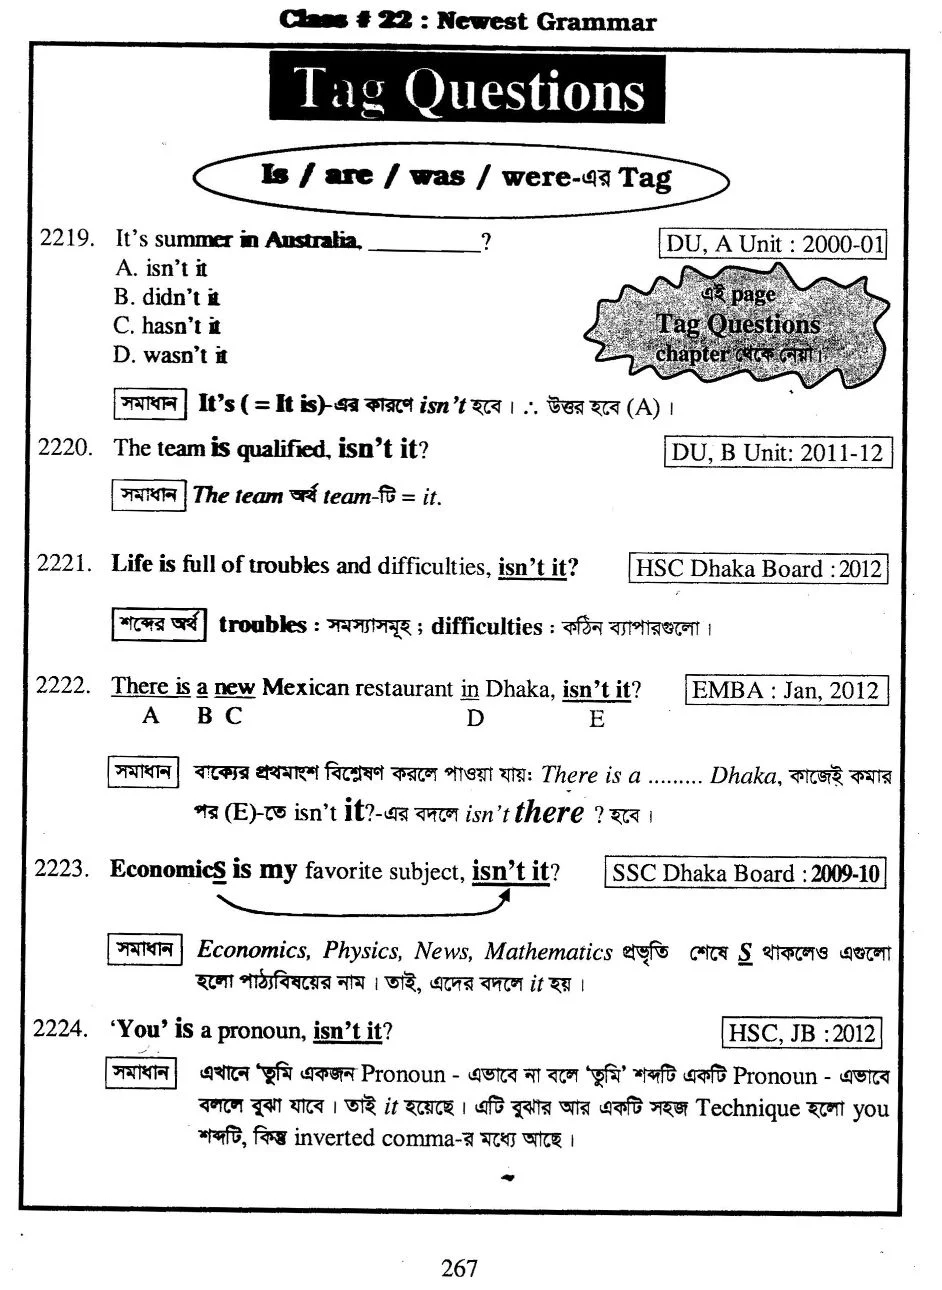 Class # 22 : Newest Grammar
Tag Questions
Is / are / was / were-এর Tag
2219. It's summer in Australia, __________? DU, A Unit : 2000-01
A. isn't it
B. didn't it
C. hasn't it
D. wasn't it
এই page
Tag Questions
chapter থেকে নেয়া।
সমাধান It's ( = It is)-এর কারণে isn't হবে । ∴ উত্তর হবে (A) ।
2220. The team is qualified, isn't it? DU, B Unit: 2011-12
সমাধান The team অর্থ team-টি = it.
2221. Life is full of troubles and difficulties, isn't it? HSC Dhaka Board : 2012
শব্দের অর্থ troubles : সমস্যাসমূহ ; difficulties : কঠিন ব্যাপারগুলো ।
2222. There is a new Mexican restaurant in Dhaka, isn't it? EMBA : Jan, 2012
A B C D E
সমাধান বাক্যের প্রথমাংশ বিশ্লেষণ করলে পাওয়া যায়: There is a ......... Dhaka, কাজেই কমার
পর (E)-তে isn't it?-এর বদলে isn't there ? হবে ।
2223. EconomicS is my favorite subject, isn't it? SSC Dhaka Board : 2009-10
সমাধান Economics, Physics, News, Mathematics প্রভৃতি শেষে S থাকলেও এগুলো
হলো পাঠ্যবিষয়ের নাম । তাই, এদের বদলে it হয় ।
2224. 'You' is a pronoun, isn't it? HSC, JB : 2012
সমাধান এখানে 'তুমি একজন Pronoun - এভাবে না বলে 'তুমি' শব্দটি একটি Pronoun - এভাবে
বললে বুঝা যাবে । তাই it হয়েছে । এটি বুঝার আর একটি সহজ Technique হলো you
শব্দটি, কিন্তু inverted comma-র মধ্যে আছে ।
267